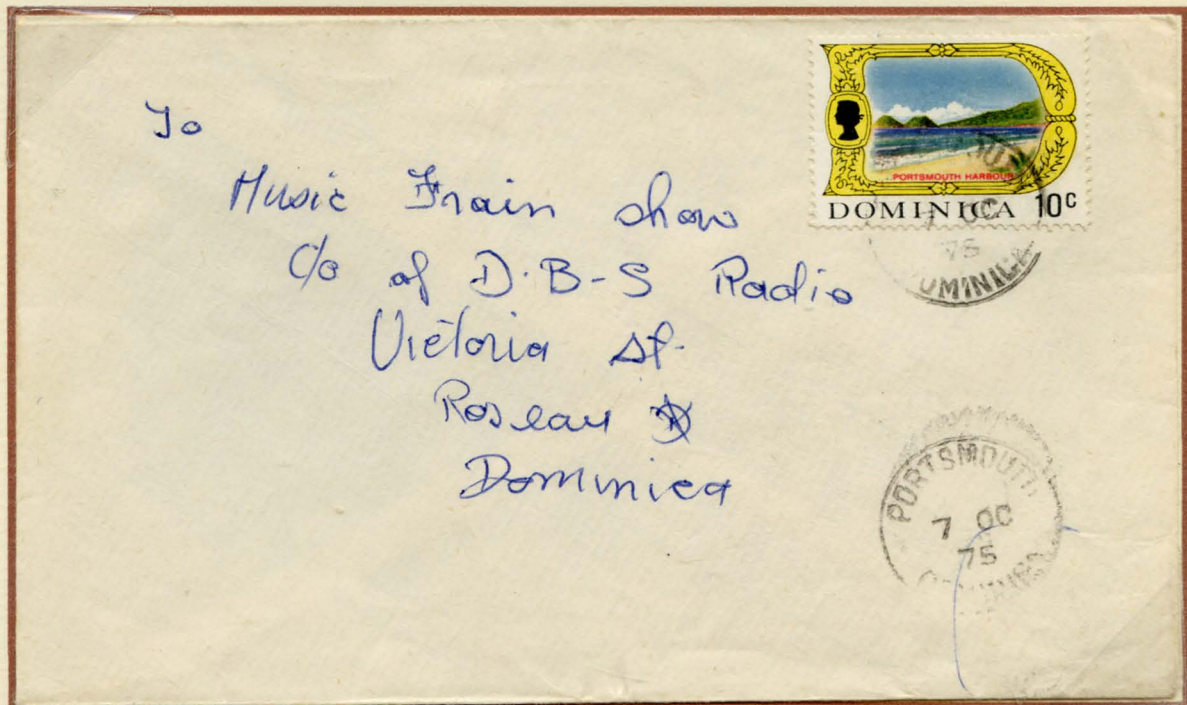 To
Music Train show
c/o of D.B-S Radio
Victoria St.
Roseau
Dominica
PORTSMOUTH HARBOUR
DOMINICA 10c
OC
75
DOMINICA
PORTSMOUTH
7 OC
75